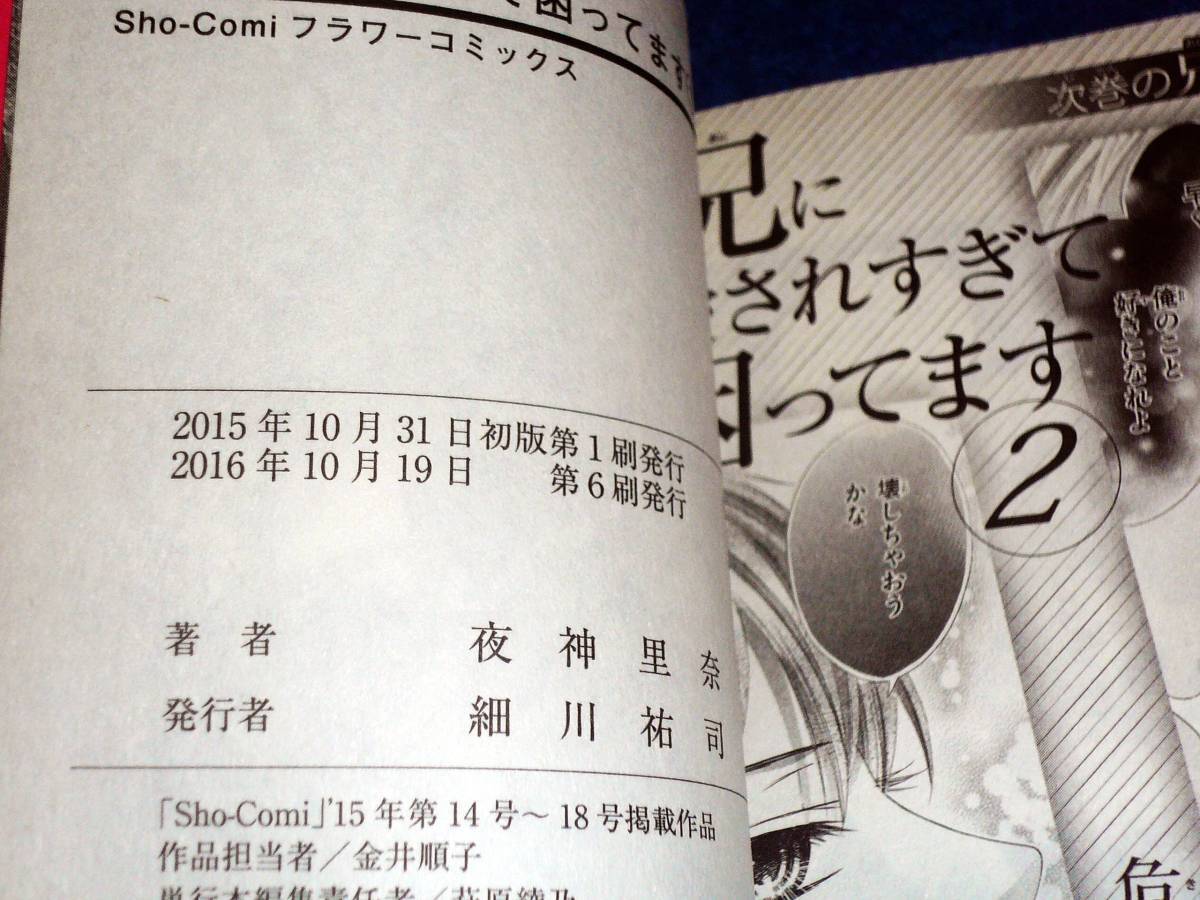 て困ってます
Sho-Comiフラワーコミックス
2015年10月31日初版第1刷発行
2016年10月19日 第6刷発行
著 者 夜 神 里 奈
発行者 細 川 祐 司
「Sho-Comi」'15年第14号～18号掲載作品
作品担当者／金井順子
単行本編集責任者／萩原綾乃
次巻の
兄に
されすぎて
困ってます
2
俺のこと
好きになれよ
壊しちゃおう
かな
危